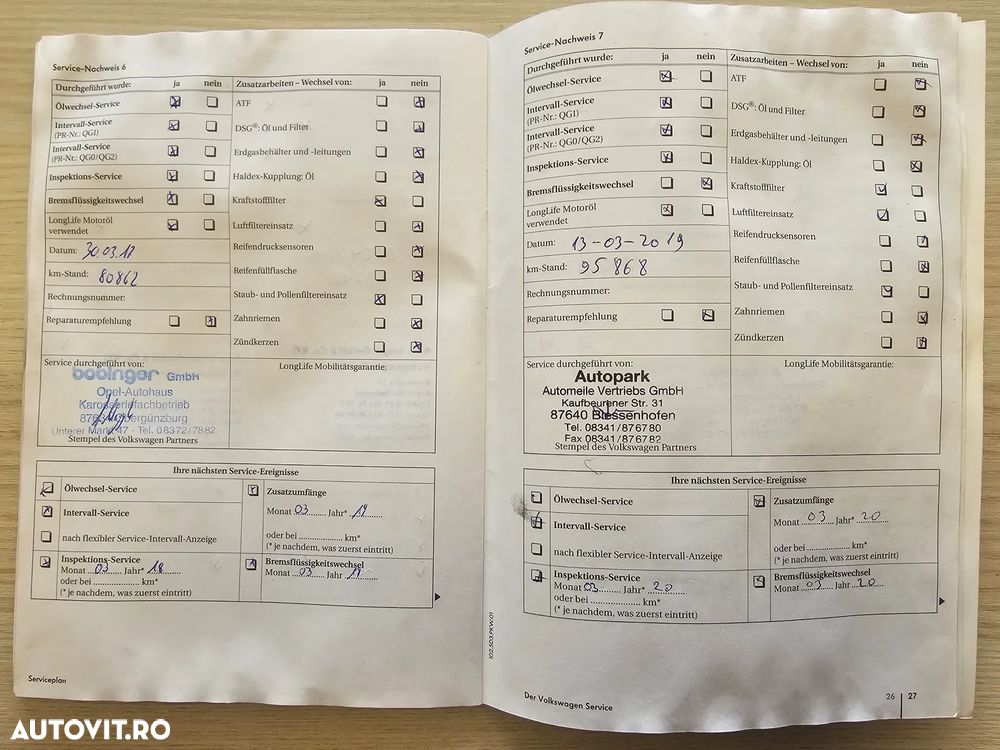 Service-Nachweis 6
Durchgeführt wurde: ja nein
Ölwechsel-Service
Intervall-Service
(PR-Nr.: QG1)
Intervall-Service
(PR-Nr.: QG0/QG2)
Inspektions-Service
Bremsflüssigkeitswechsel
LongLife Motoröl
verwendet
Datum: 30.03.17
km-Stand: 80862
Rechnungsnummer:
Reparaturempfehlung
Zusatzarbeiten – Wechsel von: ja nein
ATF
DSG®: Öl und Filter
Erdgasbehälter und -leitungen
Haldex-Kupplung: Öl
Kraftstofffilter
Luftfiltereinsatz
Reifendrucksensoren
Reifenfüllflasche
Staub- und Pollenfiltereinsatz
Zahnriemen
Zündkerzen
Service durchgeführt von:
bobinger GmbH
Opel-Autohaus
Karosseriefachbetrieb
Unterer Markt 47 - Tel. 08372/7882
Stempel des Volkswagen Partners
LongLife Mobilitätsgarantie:
Ihre nächsten Service-Ereignisse
Ölwechsel-Service
Intervall-Service
nach flexibler Service-Intervall-Anzeige
Inspektions-Service
Monat 03 Jahr* 18
oder bei ................ km*
(* je nachdem, was zuerst eintritt)
Zusatzumfänge
Monat 03 Jahr* 19
oder bei ................ km*
(* je nachdem, was zuerst eintritt)
Bremsflüssigkeitswechsel
Monat 03 Jahr 19
Serviceplan
Service-Nachweis 7
Durchgeführt wurde: ja nein
Ölwechsel-Service
Intervall-Service
(PR-Nr.: QG1)
Intervall-Service
(PR-Nr.: QG0/QG2)
Inspektions-Service
Bremsflüssigkeitswechsel
LongLife Motoröl
verwendet
Datum: 13-03-2019
km-Stand: 95868
Rechnungsnummer:
Reparaturempfehlung
Zusatzarbeiten – Wechsel von: ja nein
ATF
DSG®: Öl und Filter
Erdgasbehälter und -leitungen
Haldex-Kupplung: Öl
Kraftstofffilter
Luftfiltereinsatz
Reifendrucksensoren
Reifenfüllflasche
Staub- und Pollenfiltereinsatz
Zahnriemen
Zündkerzen
Service durchgeführt von:
Autopark
Automeile Vertriebs GmbH
Kaufbeurener Str. 31
87640 Biessenhofen
Tel. 08341/876780
Fax 08341/876782
Stempel des Volkswagen Partners
LongLife Mobilitätsgarantie:
Ihre nächsten Service-Ereignisse
Ölwechsel-Service
Intervall-Service
nach flexibler Service-Intervall-Anzeige
Inspektions-Service
Monat 03 Jahr* 20
oder bei ................ km*
(* je nachdem, was zuerst eintritt)
Zusatzumfänge
Monat 03 Jahr* 20
oder bei ................ km*
(* je nachdem, was zuerst eintritt)
Bremsflüssigkeitswechsel
Monat 03 Jahr 20
102.5D3.PKW.01
Der Volkswagen Service
26 | 27
AUTOVIT.RO